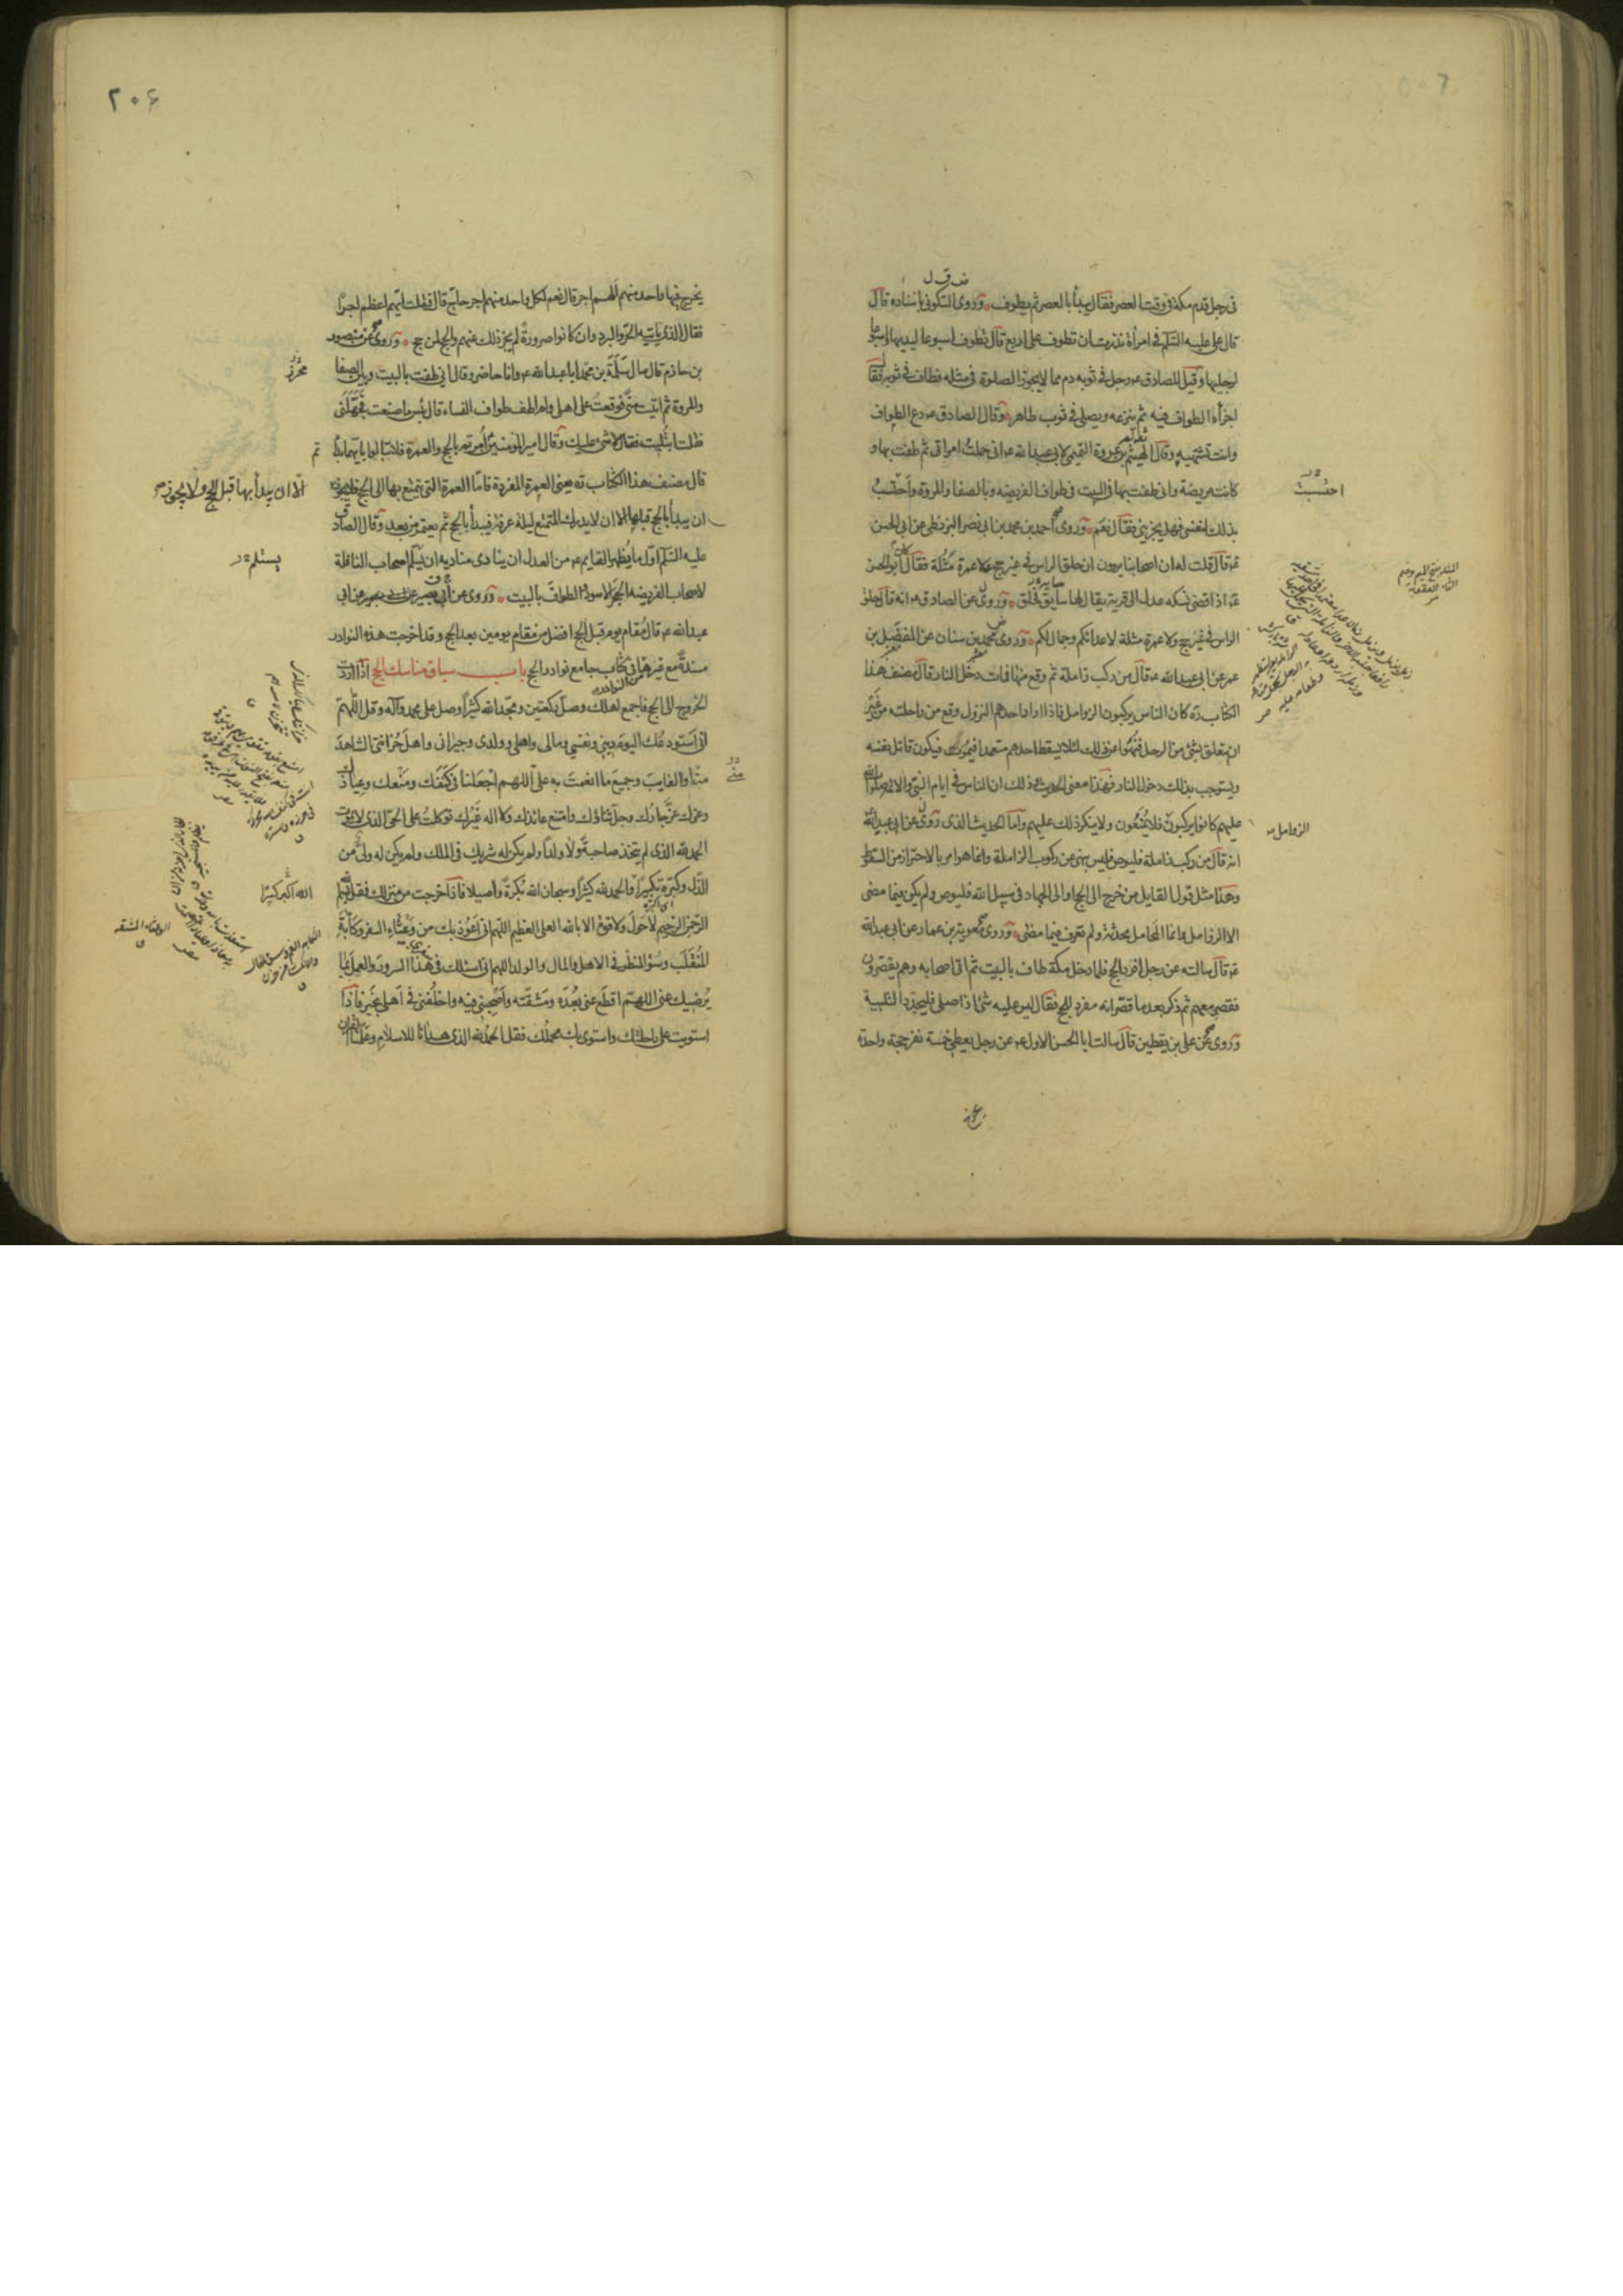 فی رجل قدم مکة فی وقت العصر فقال یبدأ بالعصر ثم یطوف وروی السکونی باسناده قال
قال علی علیه السلام فی امرأة نذرت ان تطوف علی اربع قال تطوف اسبوعا لیدیها واسبوعا
لرجلیها وقیل للصادق عه رجل فی ثوبه دم مما لا یجوز الصلوة فی مثله فطاف فی ثوبه فقال
اجزأه الطواف فیه ثم ینزعه ویصلی فی ثوب طاهر وقال الصادق عه دع الطواف
وانت تشتهیه وقال الهیثم بن عروة التمیمی لابی عبد الله عه انی حملت امراتی ثم طفت بها و
کانت مریضة وانی طفت بها فی البیت فی طواف الفریضه وبالصفا والمروة واحتسبت
بذلک لنفسی فهل یجزینی فقال نعم وروی احمد بن محمد بن ابی نصر البزنطی عن ابی الحسن
عه قال قلت له ان اصحابنا یروون ان حلق الراس فی غیر حج ولا عمرة مثلة فقال کان ابو الحسن
عه اذا قضی نسکه عدل الی قریة یقال لها سایة فحلق وروی عن الصادق عه انه قال حلق
الراس فی غیر حج ولا عمرة مثلة لاعدائکم وجمال لکم وروی محمد بن سنان عن المفضل بن
عمر عن ابی عبد الله عه قال من رکب زاملة ثم وقع منها فمات دخل النار قال مصنف هذا
الکتاب ره کان الناس یرکبون الزوامل فاذا اراد احدهم النزول وقع من راحلته من غیر
ان یتعلق بشئ من الرحل فنهوا عن ذلک لئلا یسقط احدهم متعمدا فیموت فیکون قاتل نفسه
ویستوجب بذلک دخول النار فهذا معنی الحدیث وذلک ان الناس فی ایام النبی والائمة صلوات الله
علیهم کانوا یرکبون فلا یمنعون ولا ینکر ذلک علیهم واما الحدیث الذی روی عن ابی عبد الله
انه قال من رکب زاملة فلیوص فلیس بنهی عن رکوب الزاملة وانما هو امر بالاحتراز من السقوط
وهذا مثل قول القایل من خرج الی الحج او الی الجهاد فی سبیل الله فلیوص ولم یکن فیما مضی
الا الزوامل وانما المحامل محدثة ولم تعرف فیما مضی وروی معویة بن عمار عن ابی عبد الله
عه قال سالته عن رجل افرد الحج فلما دخل مکة طاف بالبیت ثم اتی اصحابه وهم یقصرون
فقصر معهم ثم ذکر بعد ما قصر انه مفرد للحج فقال لیس علیه شئ اذا صلی فلیجدد التلبیة
وروی عن علی بن یقطین قال سالت ابا الحسن الاول عه عن رجل یعطی خمسة نفر حجة واحدة
احتسبت
الزوامل
٢٠۶
یخرج فیها واحد منهم الهم اجر قال نعم لکل واحد منهم اجر حاج قال فقلت ایهم اعظم اجرا
فقال الذی نابه الحر والبرد وان کانوا صرورة لم یجز ذلک عنهم والحج لمن حج وروی عن منصور
بن حازم قال سال سلمة بن محرز ابا عبد الله عه وانا حاضر وقال انی طفت بالبیت وبین الصفا
والمروة ثم اتیت منی فوقعت علی اهلی ولم اطف طواف النساء قال بئس ما صنعت فجهلنی
فقلت ابتلیت فقال لا شئ علیک وقال امیر المؤمنین امرتم بالحج والعمرة فلا تبالوا بایهما بدأتم
قال مصنف هذا الکتاب ره یعنی العمرة المفردة فاما العمرة التی یتمتع بها الی الحج فلا یجوز
ان یبدأ بالحج قبلها الا ان لا یدرک المتمتع لیلة عرفة فیبدأ بالحج ثم یعتمر من بعد وقال الصادق
علیه السلام اول ما یظهر القایم عه من العدل ان ینادی منادیه ان یسلم اصحاب النافلة
لاصحاب الفریضه الحجر الاسود والطواف بالبیت وروی عن ابی بصیر عن ابی
عبد الله عه قال مقام یوم قبل الحج افضل من مقام یومین بعد الحج وقد اخرجت هذه النوادر
مسندة مع غیرها فی کتاب جامع نوادر الحج باب سیاق مناسک الحج اذا اردت
الخروج الی الحج فاجمع اهلک وصل رکعتین ومجد الله کثیرا وصل علی محمد وآله وقل اللهم
انی استودعک الیوم دینی ونفسی ومالی واهلی وولدی وجیرانی واهل حزانتی الشاهد
منا والغایب وجمیع ما انعمت به علی اللهم اجعلنا فی کنفک ومنعک وعیاذک
وعزک عز جارک وجل ثناؤک وامتنع عائذک ولا اله غیرک توکلت علی الحی الذی لا یموت
الحمد لله الذی لم یتخذ صاحبة ولا ولدا ولم یکن له شریک فی الملک ولم یکن له ولی من
الذل وکبره تکبیرا والحمد لله کثیرا وسبحان الله بکرة واصیلا فاذا خرجت من منزلک فقل بسم الله
الرحمن الرحیم لا حول ولا قوة الا بالله العلی العظیم اللهم انی اعوذ بک من وعثاء السفر وکآبة
المنقلب وسوء المنظر فی الاهل والمال والولد اللهم انی اسئلک فی هذا السرور والعمل بما
یرضیک عنی اللهم اقطع عنی بعده ومشقته واصحبنی فیه واخلفنی فی اهلی بخیر فاذا
استویت علی راحلتک واستوی بک محملک فقل الحمد لله الذی هدانا للاسلام وعلمنا القران
محرز
تم
الا ان یبدأ بها قبل الحج ولا یجوز
یستلم
الله اکبر کبیرا